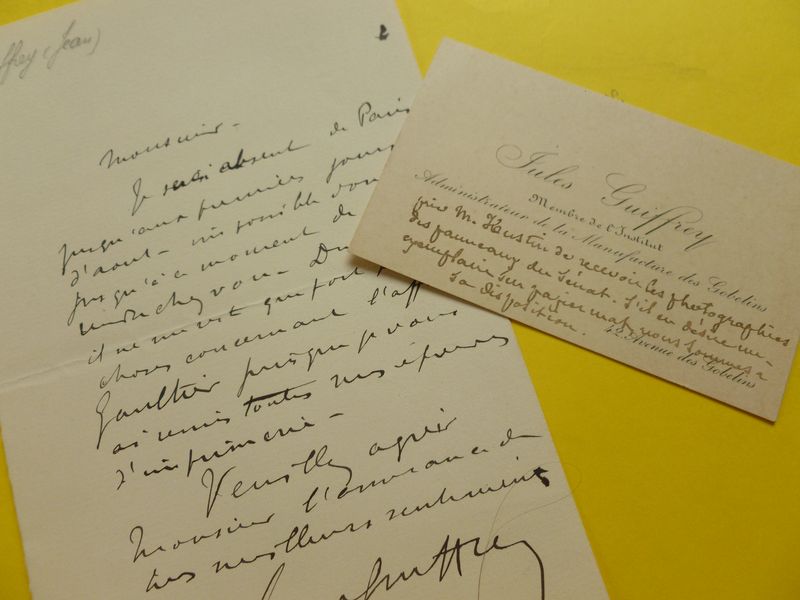 ffrey (Jean)
Monsieur -
Je serai absent de Paris
jusqu'aux premiers jours
d'août - impossible donc
jusqu'à ce moment de
rendre chez vous. Du
il ne me reste que fort
choses concernant l'aff
Gaultier puisque je vous
ai remis toutes mes épreuves
d'imprimerie -
Veuillez agréer
Monsieur l'assurance de
mes meilleurs sentiments
Guiffrey
Jules Guiffrey
Membre de l'Institut
Administrateur de la Manufacture des Gobelins
prie M. Hustin de recevoir les photographies
des panneaux du Sénat. S'il en désire un
exemplaire sur papier mat, nous sommes à
sa disposition.
42, Avenue des Gobelins